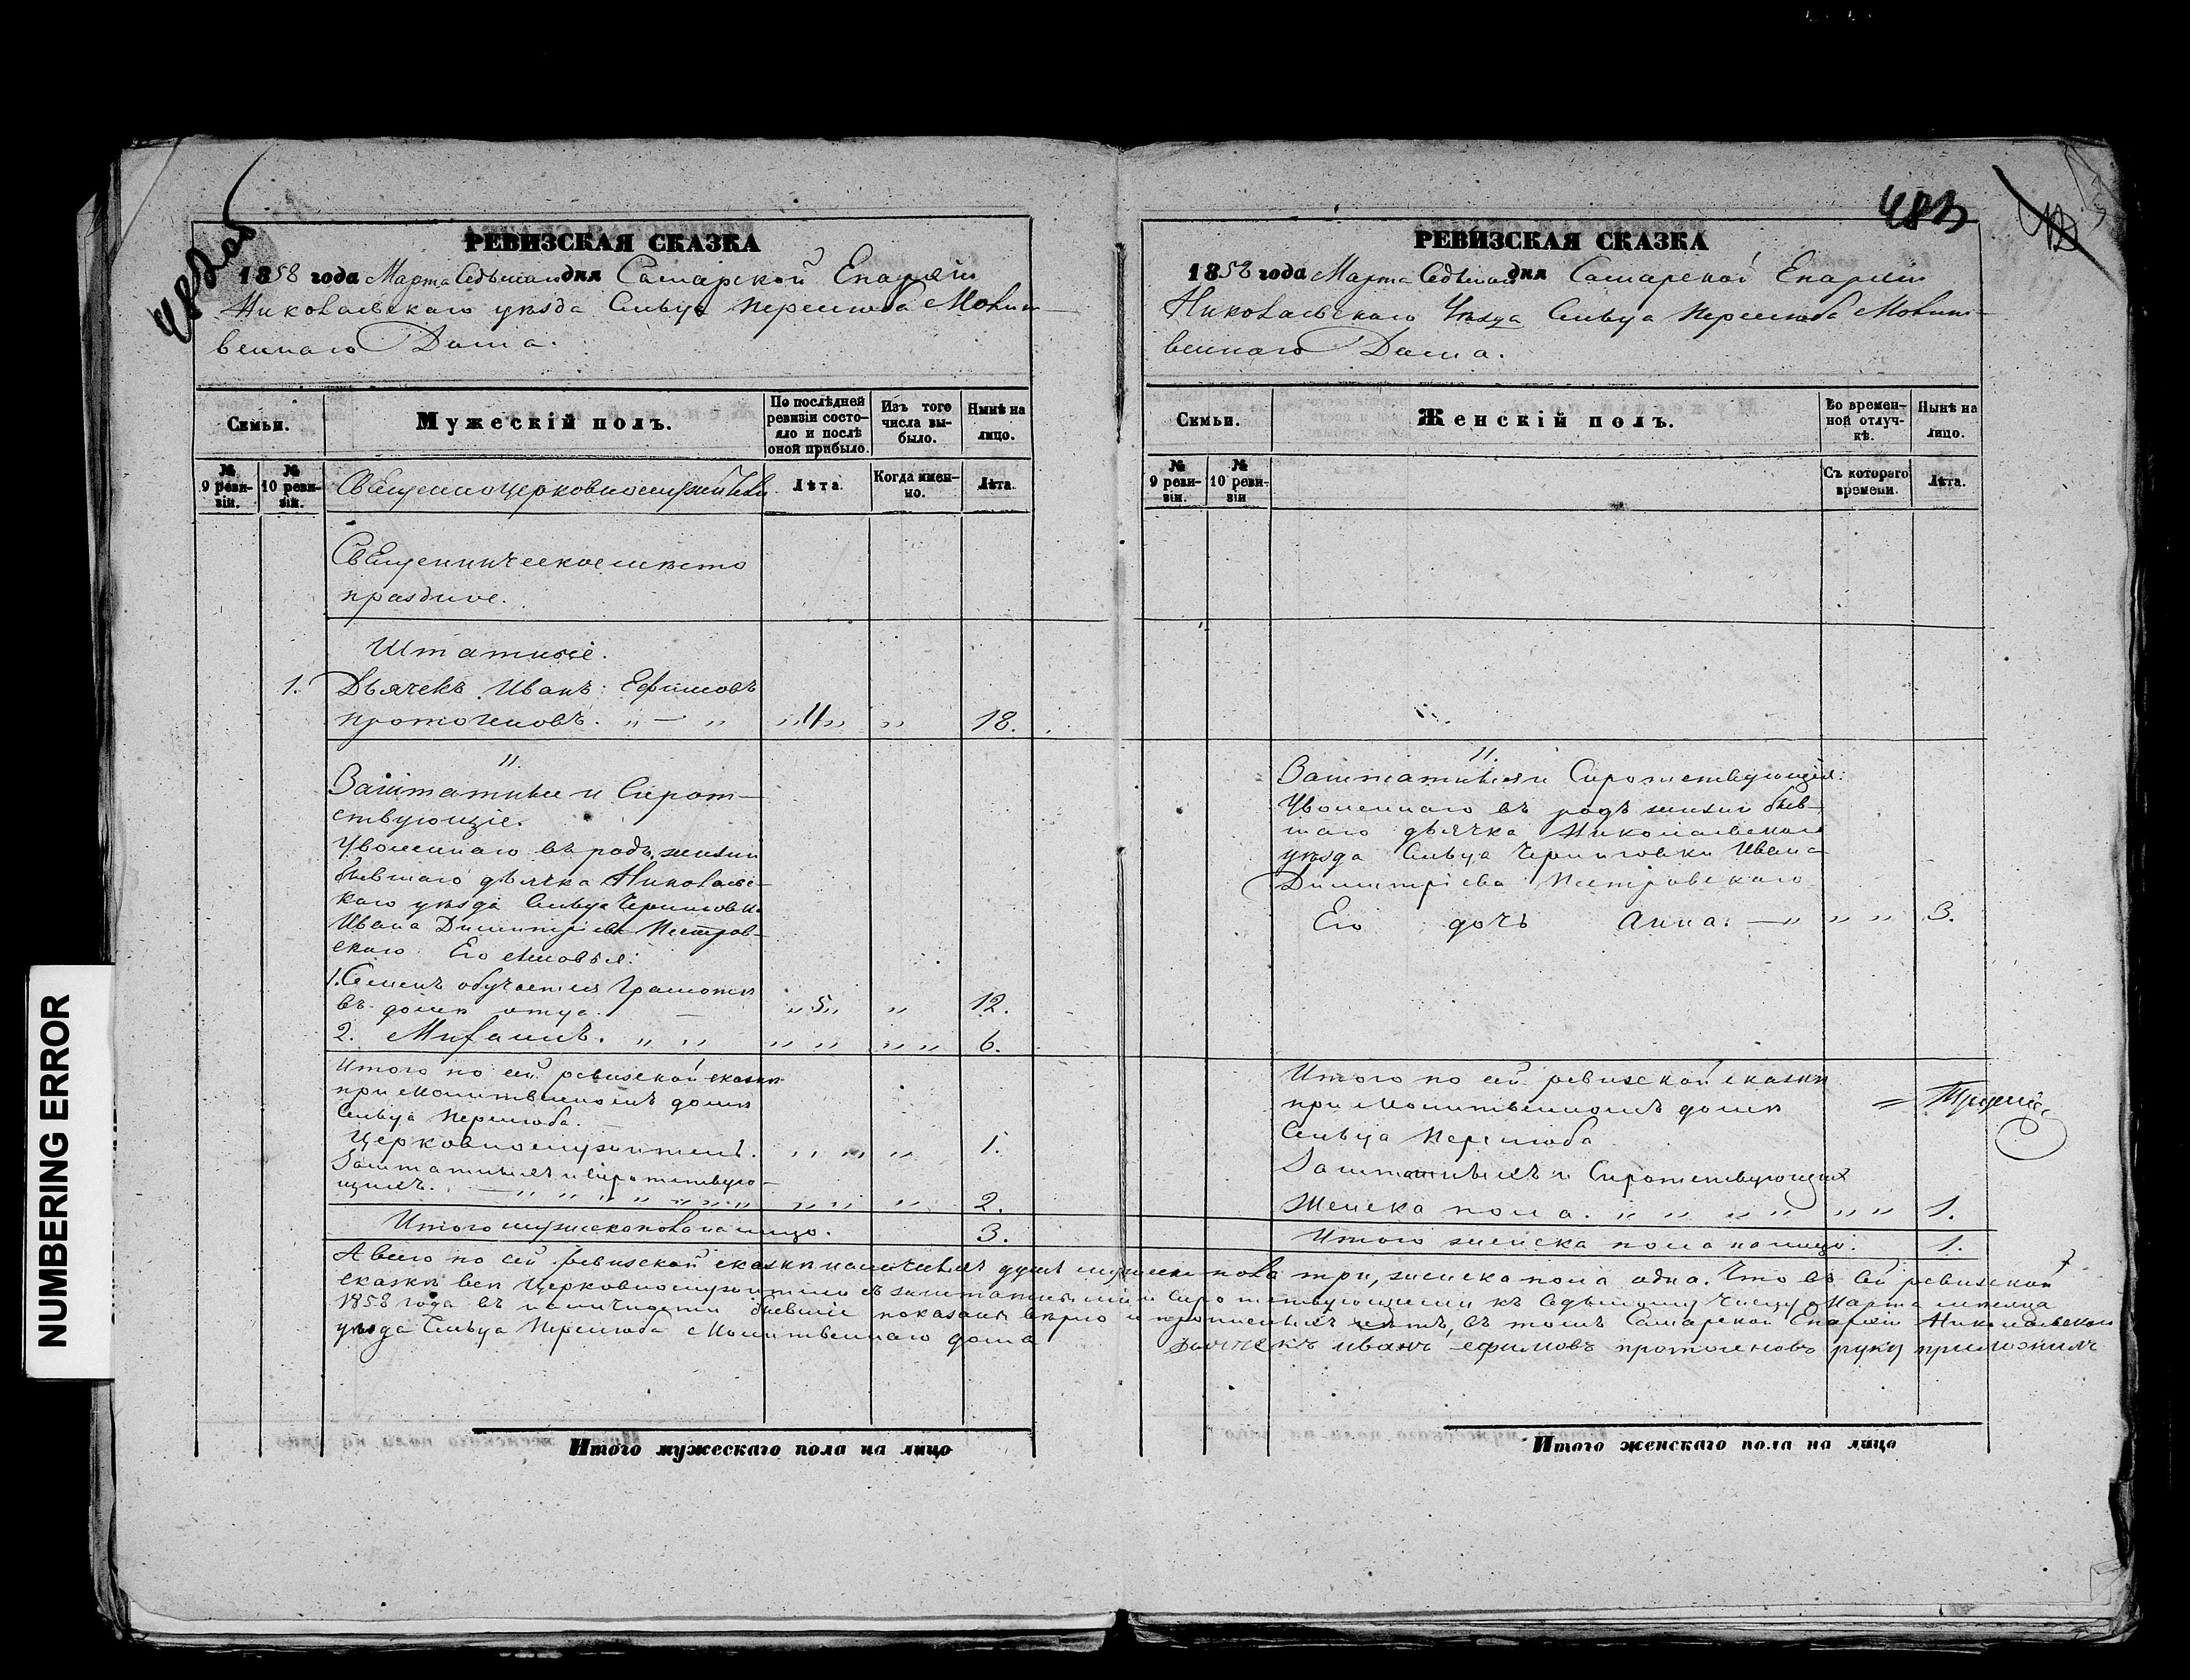 РЕВИЗСКАЯ СКАЗКА
1858 года Марта Седьмаго дня Самарской Епархіи
Николаевскаго уѣзда Сельца Перелюба Молит-
веннаго Дома.
Семьи.
Мужескій полъ.
По послѣдней ревизіи состо-
яло и послѣ оной прибыло.
Изъ того числа вы-
было.
Нынѣ на лицо.
№ 9 реви-
зіи.
№ 10 реви-
зіи.
Священноцерковнослужители.
Лѣта.
Когда имен-
но.
Лѣта.
Священническое мѣсто
праздно.
Штатные.
1. Дьячекъ Иванъ Ефимовъ
Протогеновъ. „ — „ „11„ „ 18.
11.
Заштатные и Сирот-
ствующіе.
Уволеннаго въ родъ жизни
бывшаго дьячка Николаевс-
каго уѣзда Сельца Черниговки
Ивана Димитріева Петров-
скаго Его сыновья:
1. Семенъ обучается грамотѣ
въ домѣ отца. „5„ „ 12.
2. Михаилъ. „ „ „ „ „ „ 6.
Итого по сей ревизской сказкѣ
при Молитвенномъ домѣ
Сельца Перелюба.
Церковнослужителей. „ „ „ „ 1.
Заштатныхъ и Сиротствую-
щихъ. — „ „ „ „ „ „ „ 2.
Итого мужеска пола на лицо. 3.
РЕВИЗСКАЯ СКАЗКА
483
1858 года Марта Седьмаго дня Самарской Епархіи
Николаевскаго Уѣзда Сельца Перелюба Молит-
веннаго Дома.
Семьи.
Женскій полъ.
Во времен-
ной отлуч-
кѣ.
Нынѣ на лицо.
№ 9 реви-
зіи.
№ 10 реви-
зіи.
Съ котораго времени.
Лѣта.
11.
Заштатныя и Сиротствующія:
Уволеннаго въ родъ жизни быв-
шаго дьячка Николаевскаго
уѣзда Сельца Черниговки Ивана
Димитріева Петровскаго
Его дочь Анна. — „ „ „ 3.
Итого по сей ревизской сказкѣ
при Молитвенномъ домѣ
Сельца Перелюба
Заштатныхъ и Сиротствующихъ
Женска пола. „ „ „ „ „ „ 1.
Итого женска пола на лицо. 1.
А всего по сей ревизской сказкѣ наличныхъ душъ мужеска пола три, женска пола одна. Что въ сей ревизской
сказкѣ всѣ Церковнослужители съ заштатными и сиротствующими къ Седьмому числу Марта мѣсяца
1858 года въ наличности бывшіе показаны вѣрно и прописныхъ нѣтъ, въ томъ Самарской Епархіи Николаевскаго
уѣзда Сельца Перелюба Молитвеннаго дома Дьячекъ иванъ ефимовъ протогеновъ руку приложилъ
Итого мужескаго пола на лицо
Итого женскаго пола на лицо
NUMBERING ERROR